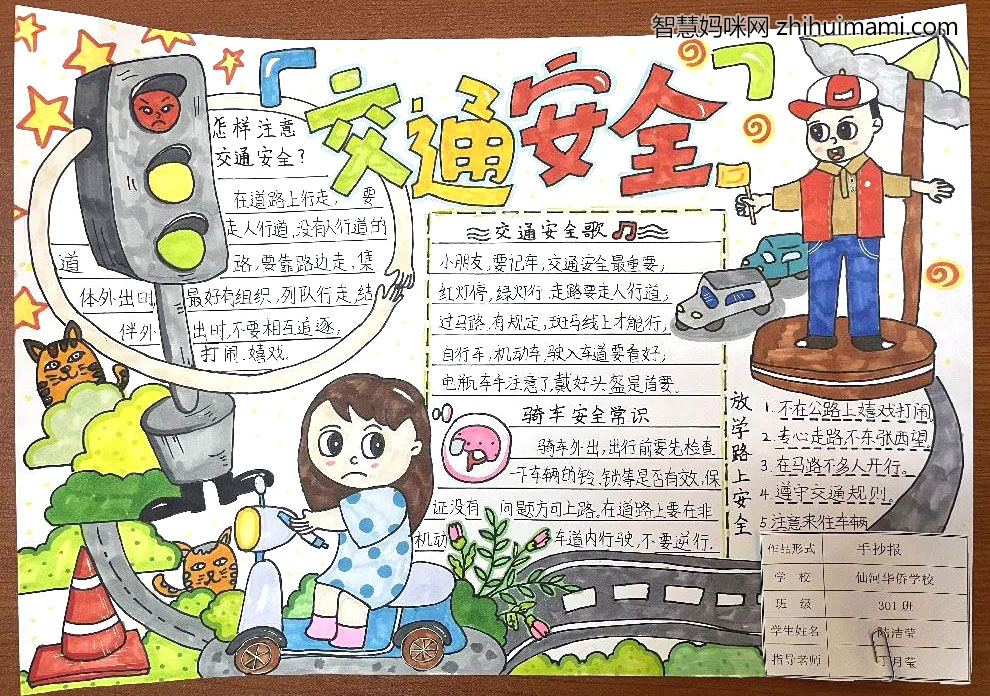 智慧妈咪网 zhihuimami.com
交通安全
怎样注意
交通安全?
在道路上行走, 要
走人行道,没有人行道的
道 路,要靠路边走.集
体外出时, 最好有组织,列队行走,结
伴外 出时,不要相互追逐,
打闹.嬉戏.
交通安全歌
小朋友,要记牢,交通安全最重要;
红灯停,绿灯行,走路要走人行道;
过马路,有规定,斑马线上才能行,
自行车,机动车,驶入车道要看好;
电瓶车车注意了,戴好头盔是首要.
骑车安全常识
骑车外出,出行前要先检查
一下车辆的铃.锁等是否有效,保
证没有 问题方可上路.在道路上要在非
机动 车道内行驶,不要逆行.
放学路上安全
1.不在公路上嬉戏打闹
2.专心走路不东张西望.
3.在马路不多人并行。
4.遵守交通规则。
5.注意来往车辆
作品形式 手抄报
学 校 仙河华侨学校
班 级 301班
学生姓名 陆洁莹
指导老师 月莹